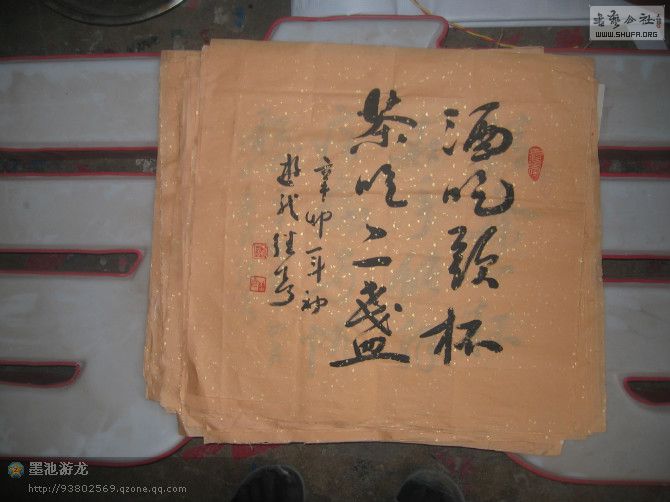 酒吃头杯
茶吃二盏
辛卯年初
书艺公社
WWW.SHUFA.ORG
墨池游龙
http://93802569.qzone.qq.com/